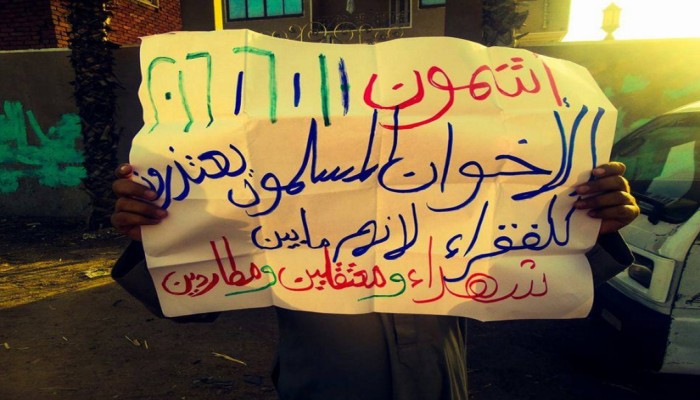 أشمون
الإخوان المسلمون يعتذرون
للفقراء لانهم مابين
شهداء و معتقلين و مطاردين